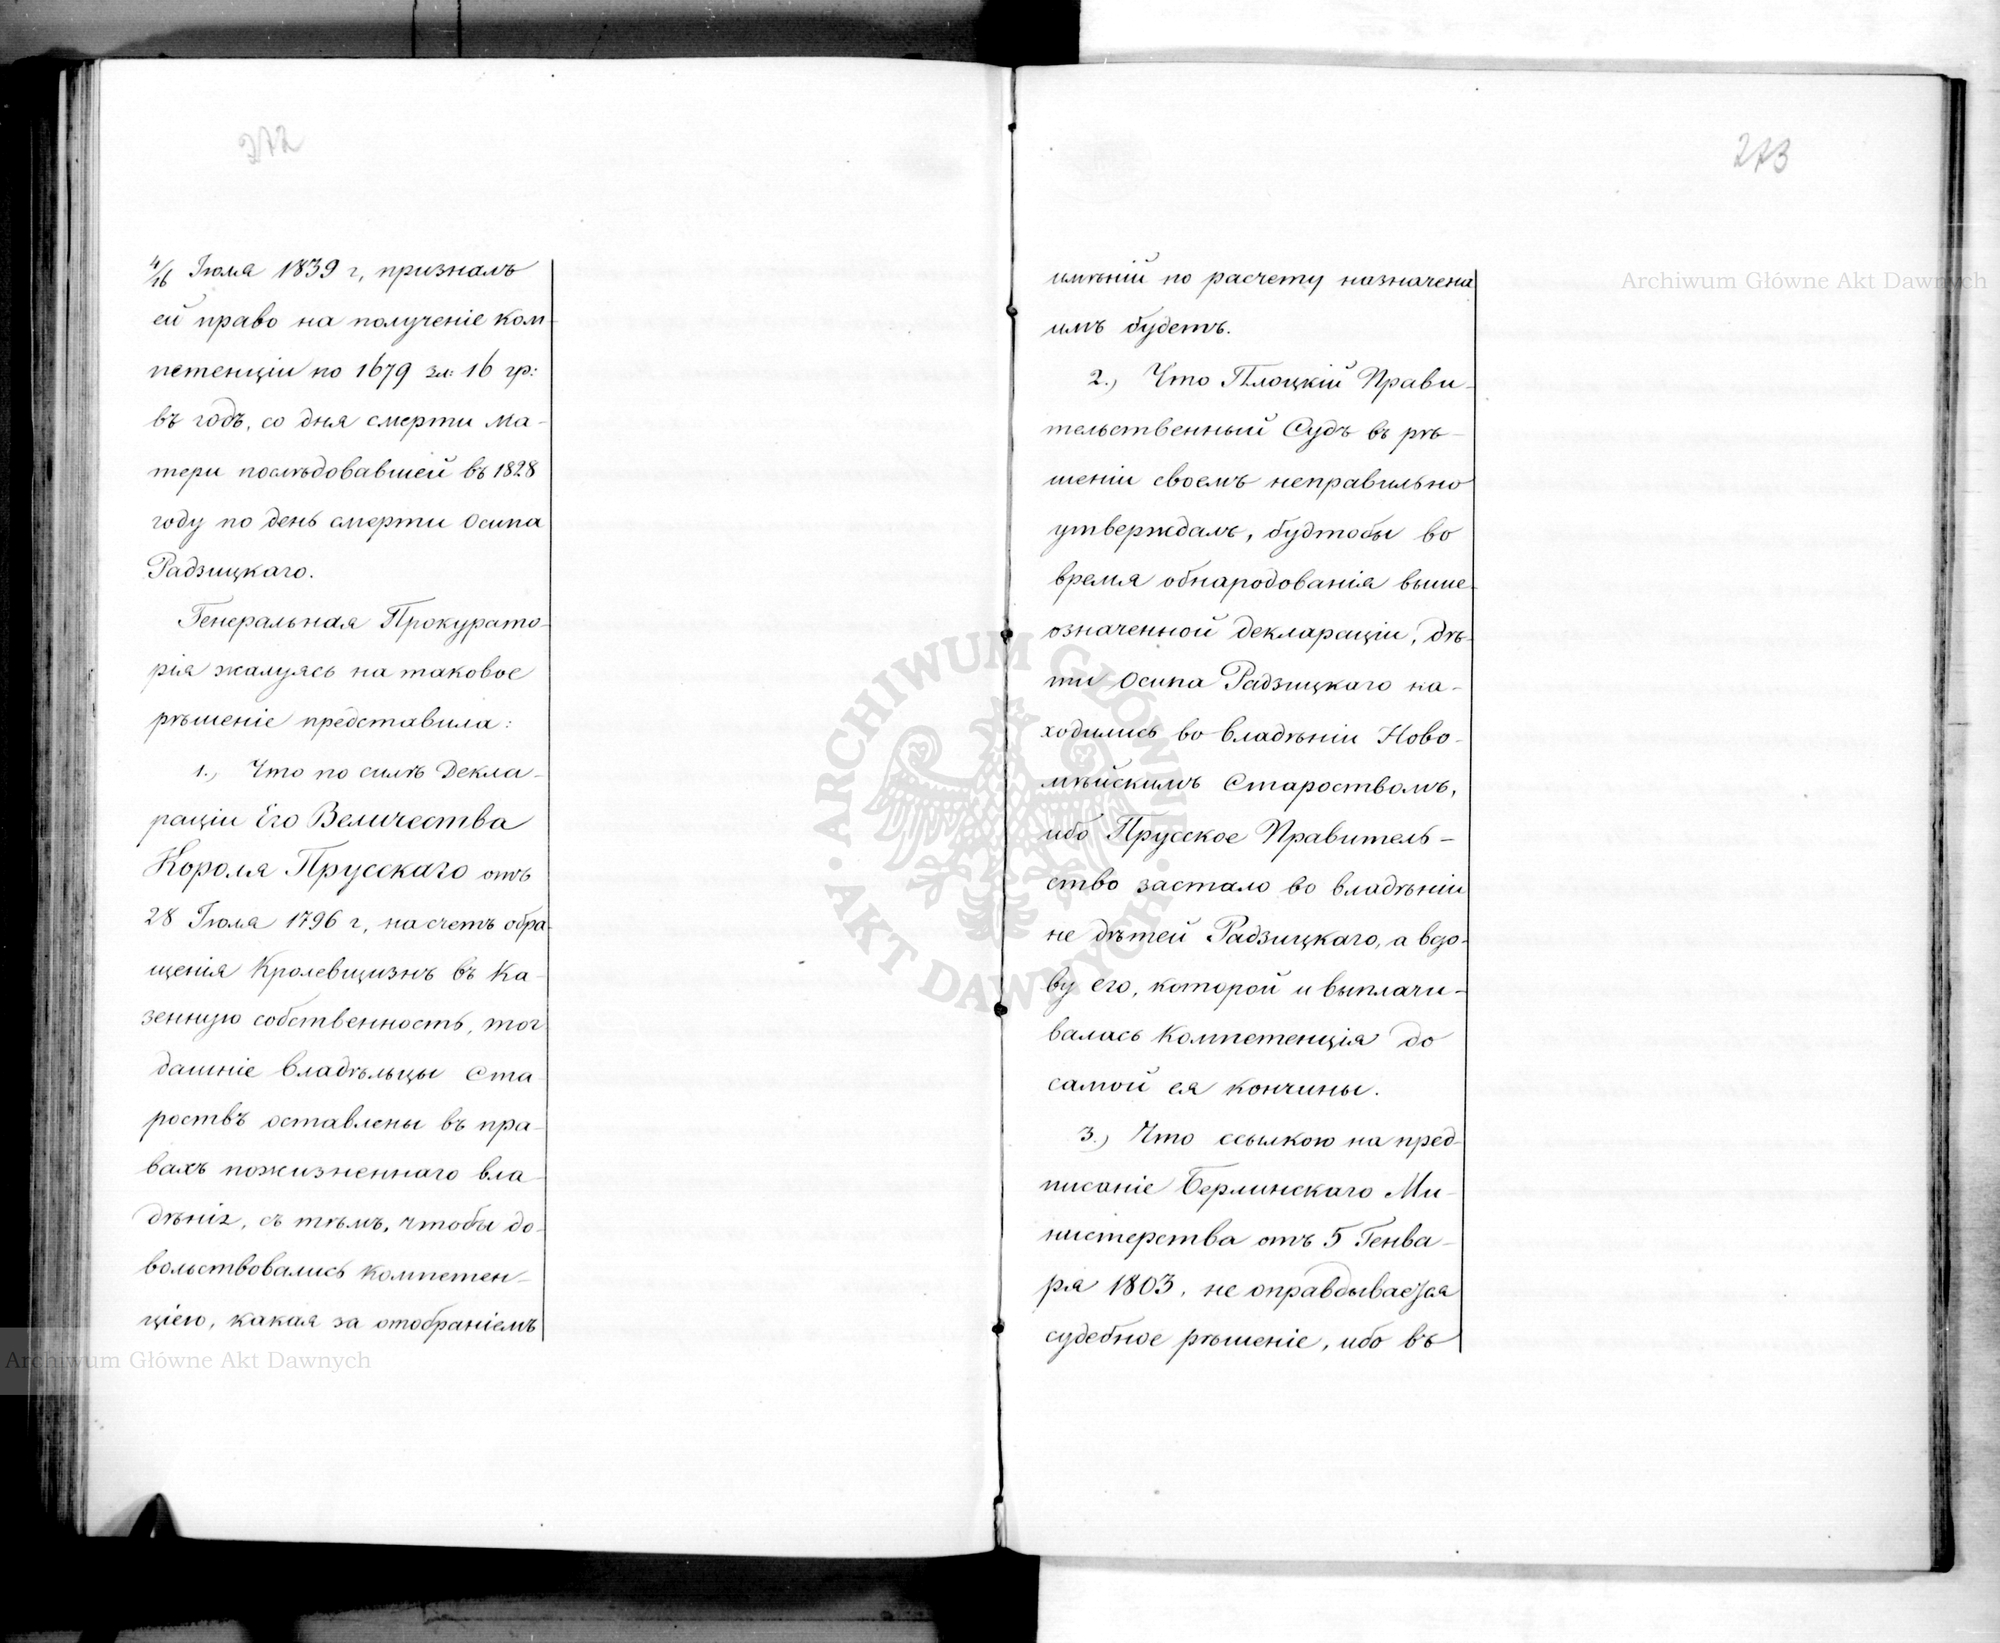 272
4/16 Іюля 1839 г, призналъ
ей право на полученіе ком-
петенціи по 1679 зл: 16 гр:
въ годъ, со дня смерти ма-
тери послѣдовавшей въ 1828
году по день смерти Осипа
Радзицкаго.
Генеральная Прокурато-
рія жалуясь на таковое
рѣшеніе представила:
1., Что по силѣ Декла-
раціи Его Величества
Короля Прусскаго отъ
28 Іюля 1796 г, на счетъ обра-
щенія Кролевщизнъ въ Ка-
зенную собственность, тог
дашніе владѣльцы Ста-
роствъ оставлены въ пра-
вахъ пожизненнаго вла-
дѣнія, съ тѣмъ, чтобы до-
вольствовались компетен-
ціею, какая за отобраніемъ
273
имѣній по расчету назначена
имъ будетъ.
2., Что Плоцкій Прави-
тельственный Судъ въ рѣ-
шеніи своемъ неправильно
утверждалъ, будтобы во
время обнародованія выше-
означенной декларации, дѣ-
ти Осипа Радзицкаго на-
ходились во владѣніи Ново-
мѣйскимъ Староствомъ,
ибо Прусское Правитель-
ство застало во владѣніи
не дѣтей Радзицкаго, а вдо-
ву его, которой и выплачи-
валась компетенція до
самой ея кончины.
3., Что ссылкою на пред-
писаніе Берлинскаго Ми-
нистерства отъ 5 Генва-
ря 1803, не оправдывается
судебное рѣшеніе, ибо въ
Archiwum Główne Akt Dawnych
Archiwum Główne Akt Dawnych
ARCHIWUM GŁÓWNE AKT DAWNYCH